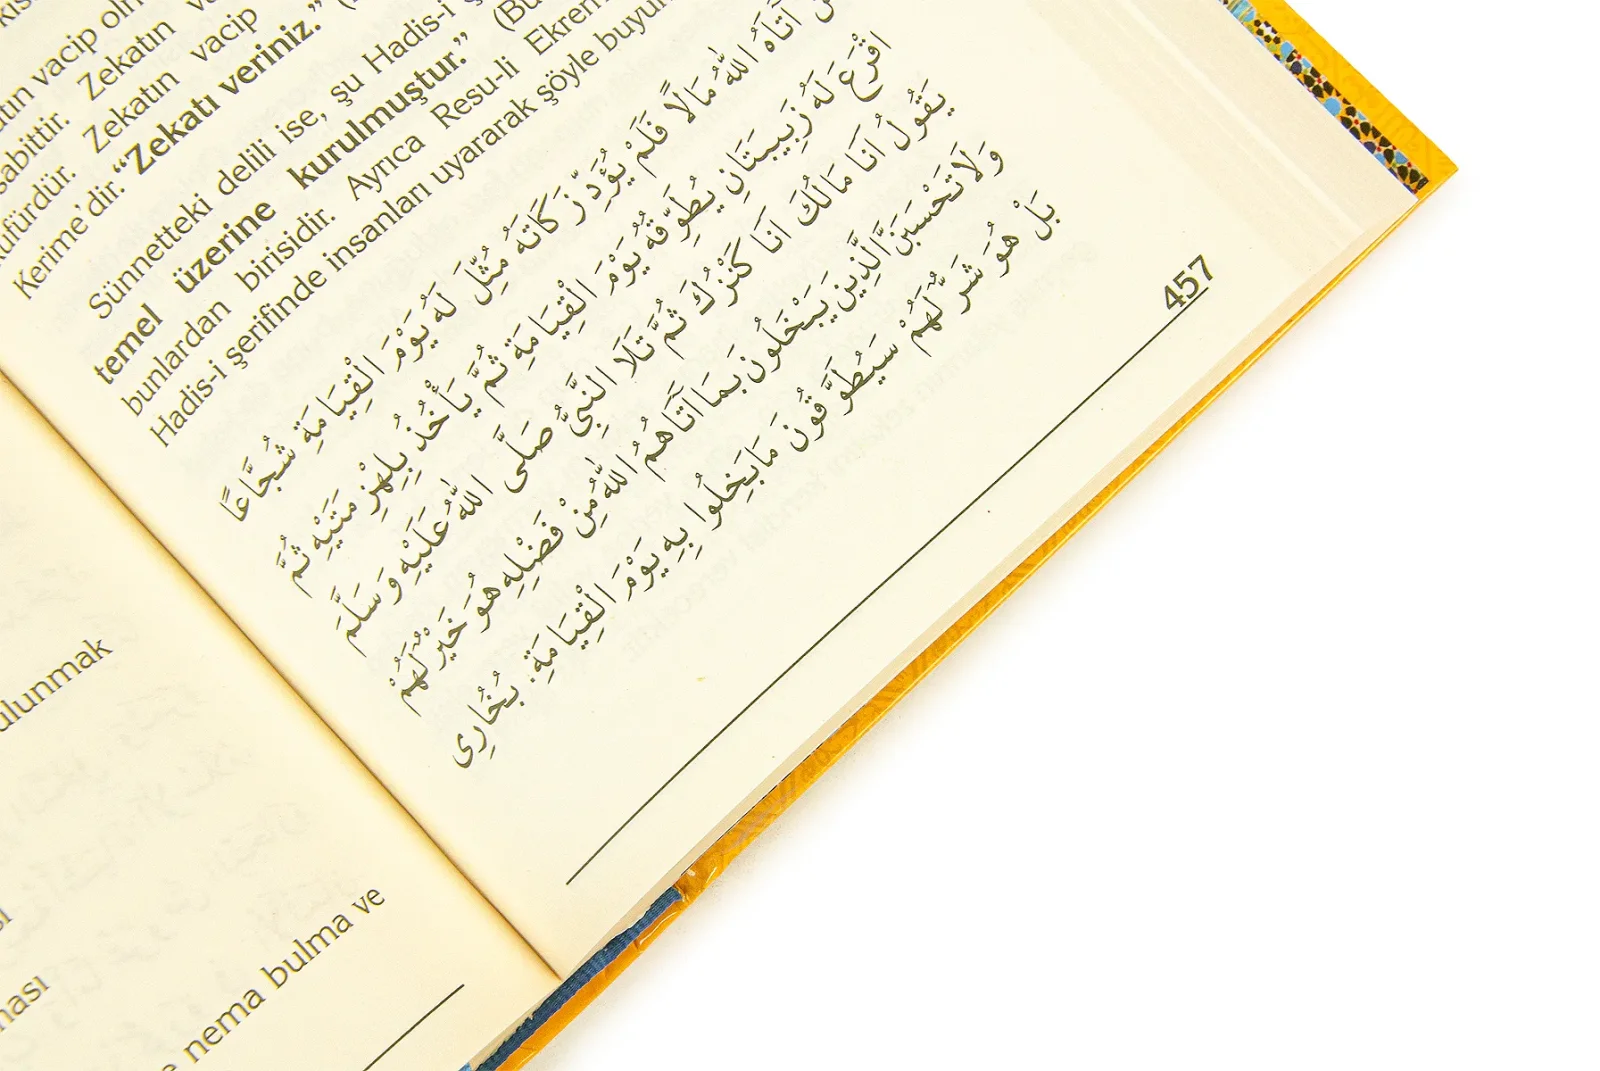 ulunmak
nası
nema bulma ve
tın vacip
sabittir. Zekatın
küfürdür. Zekatın vacip
Kerime'dir. “Zekatı veriniz.”
Sünnetteki delili ise, şu Hadis-i
temel üzerine kurulmuştur.” (Bu
bunlardan birisidir. Ayrıca Resu-li Ekrem
Hadis-i şerifinde insanları uyararak şöyle buyur
آتَاهُ اللهُ مَالًا فَلَمْ يُؤَدِّ زَكَاتَهُ مُثِّلَ لَهُ يَوْمَ الْقِيَامَةِ شُجَّاعًا
اَقْرَعَ لَهُ زُبِيبَتَانِ يُطَوِّقُهُ يَوْمَ الْقِيَامَةِ ثُمَّ يَأْخُذُ بِلِهْزِ مَتَيْهِ ثُمَّ
يَقُولُ اَنَا مَالُكَ اَنَا كَنْزُكَ ثُمَّ تَلَا النَّبِيُّ صَلَّى اللهُ عَلَيْهِ وَسَلَّمَ
وَلَا تَحْسَبَنَّ الَّذِينَ يَبْخَلُونَ بِمَا آتَاهُمُ اللهُ مِنْ فَضْلِهِ هُوَ خَيْرٌ لَهُمْ
بَلْ هُوَ شَرٌّ لَهُمْ سَيُطَوَّقُونَ مَا بَخِلُوا بِهِ يَوْمَ الْقِيَامَةِ. بُخَارِى
457